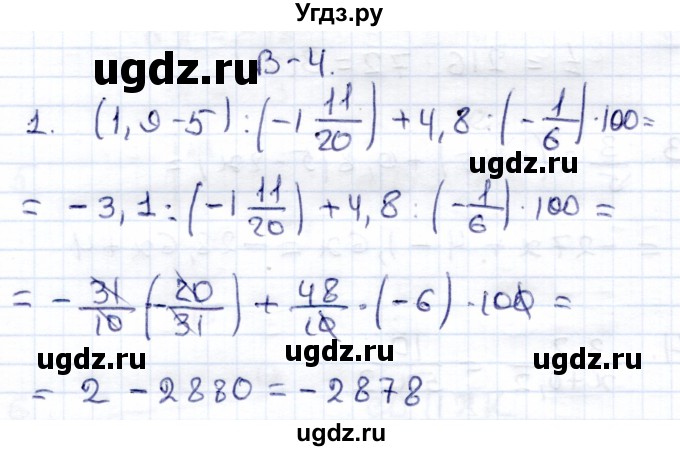 Угдз.ру
ugdz.ru В-4.
1. (1,9-5):(-1 11/20)+4,8:(-1/6)·100=
ugdz.ru
= -3,1:(-1 11/20)+4,8:(-1/6)·100=
= -31/10(-20/31)+48/10·(-6)·100=
ugdz.ru ugdz.ru ugdz.ru
= 2-2880=-2878
ugdz.ru